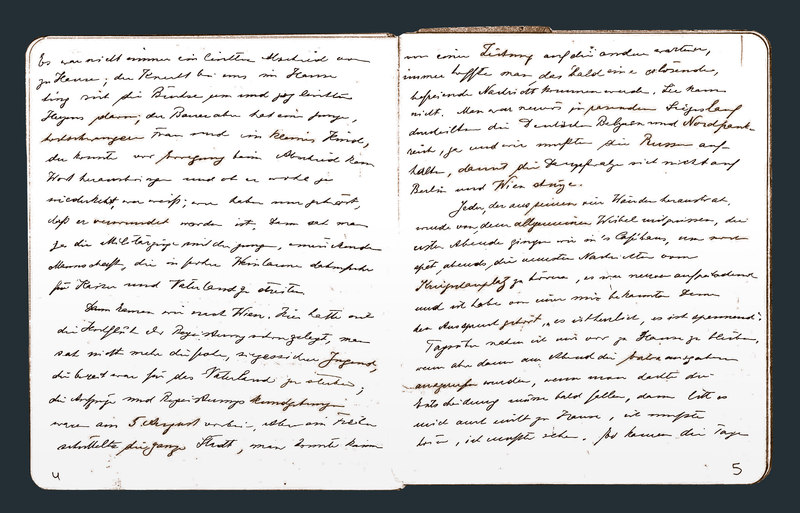 Es war nicht immer ein leichter Abschied von
zu Hause; der Knecht bei uns im Hause
hing sich die Binde um und zog leichten
Herzens davon; der Bauer aber hat ein junge,
hochschwangere Frau und ein kleines Kind,
der konnte vor Erregung beim Abschied kein
Wort herausbringen und ob er wohl je
wiederkehrt wer weiß; wir haben nur gehört,
daß er verwundet worden ist. Dann sah man
ja die Militärzüge mit der jungen,
Mannschaft, die in froher
für Kaiser und Vaterland zu streiten.
Dann kamen wir nach Wien. Hier hatte sich
die Hochflut der Begeisterung schon gelegt, man
sah nicht mehr die frohe, siegessichere Jugend,
die bereit war für das Vaterland zu sterben;
die Aufzüge und Begeisterungskundgebungen
waren am 5 August vorbei, aber ein Fieber
schüttelte die ganze Stadt, man konnte kaum
4
von einer Zeitung auf die andere warten,
immer hoffte man, das bald eine erlösende,
befreiende Nachricht kommen werde. Sie kam
nicht. Man war nervös
die Deutschen Belgien und Nordfrank-
reich, ja und wir mußten die Russen auf-
halten, damit die nicht auf
Berlin und Wien
Jeder, der aus seinen vier Wänden heraustrat,
wurde von dem allgemeinen Wirbel mitgerissen, die
ersten Abende gingen wir in's Cafehaus, um noch
spät abends die neuesten Nachrichten vom
Kriegsschauplatz zu hören, es war nervös aufpeitschend
und ich habe von einer mir bekannten Dame
den Ausspruch gehört, „es ist herrlich, es ist spannend".
Tagsüber nahm ich mir vor zu Hause zu bleiben,
wenn aber dann am Abend die Extraausgaben
ausgerufen wurden, wenn man dachte die
Entscheidung müsse bald fallen, dann litt es
mich auch nicht zu Hause, ich mußte
hören, ich mußte sehen. So kamen die Tage
5